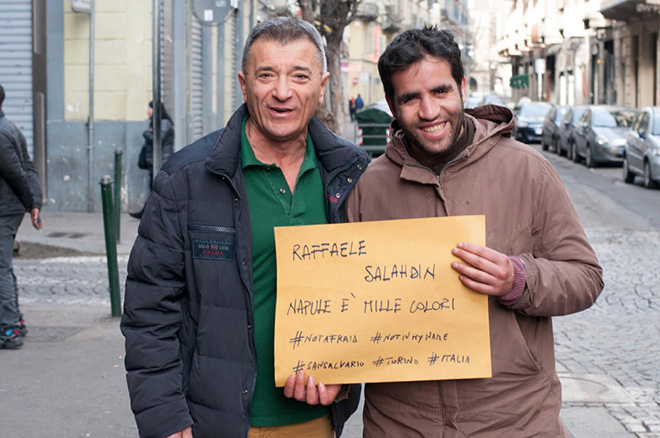 RAFFAELE
SALAHDIN
NAPULE E' MILLE COLORI
#NOTAFRAID #NOTINMYNAME
#SANSALVARIO #TORINO #ITALIA